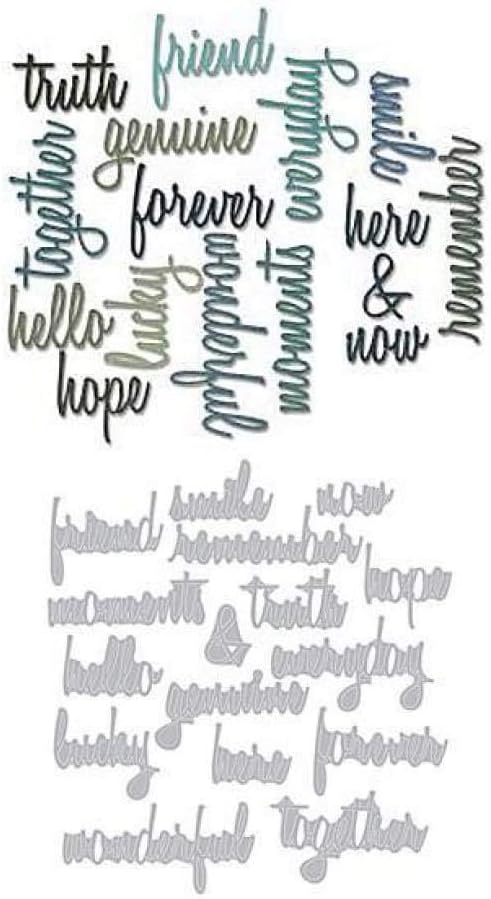 friend
truth
genuine
everyday
smile
together
forever
here
remember
&
hello
lucky
wonderful
moments
now
hope
smile
now
friend
remember
hope
moments
truth
&
everyday
hello
genuine
lucky
here
forever
wonderful
together